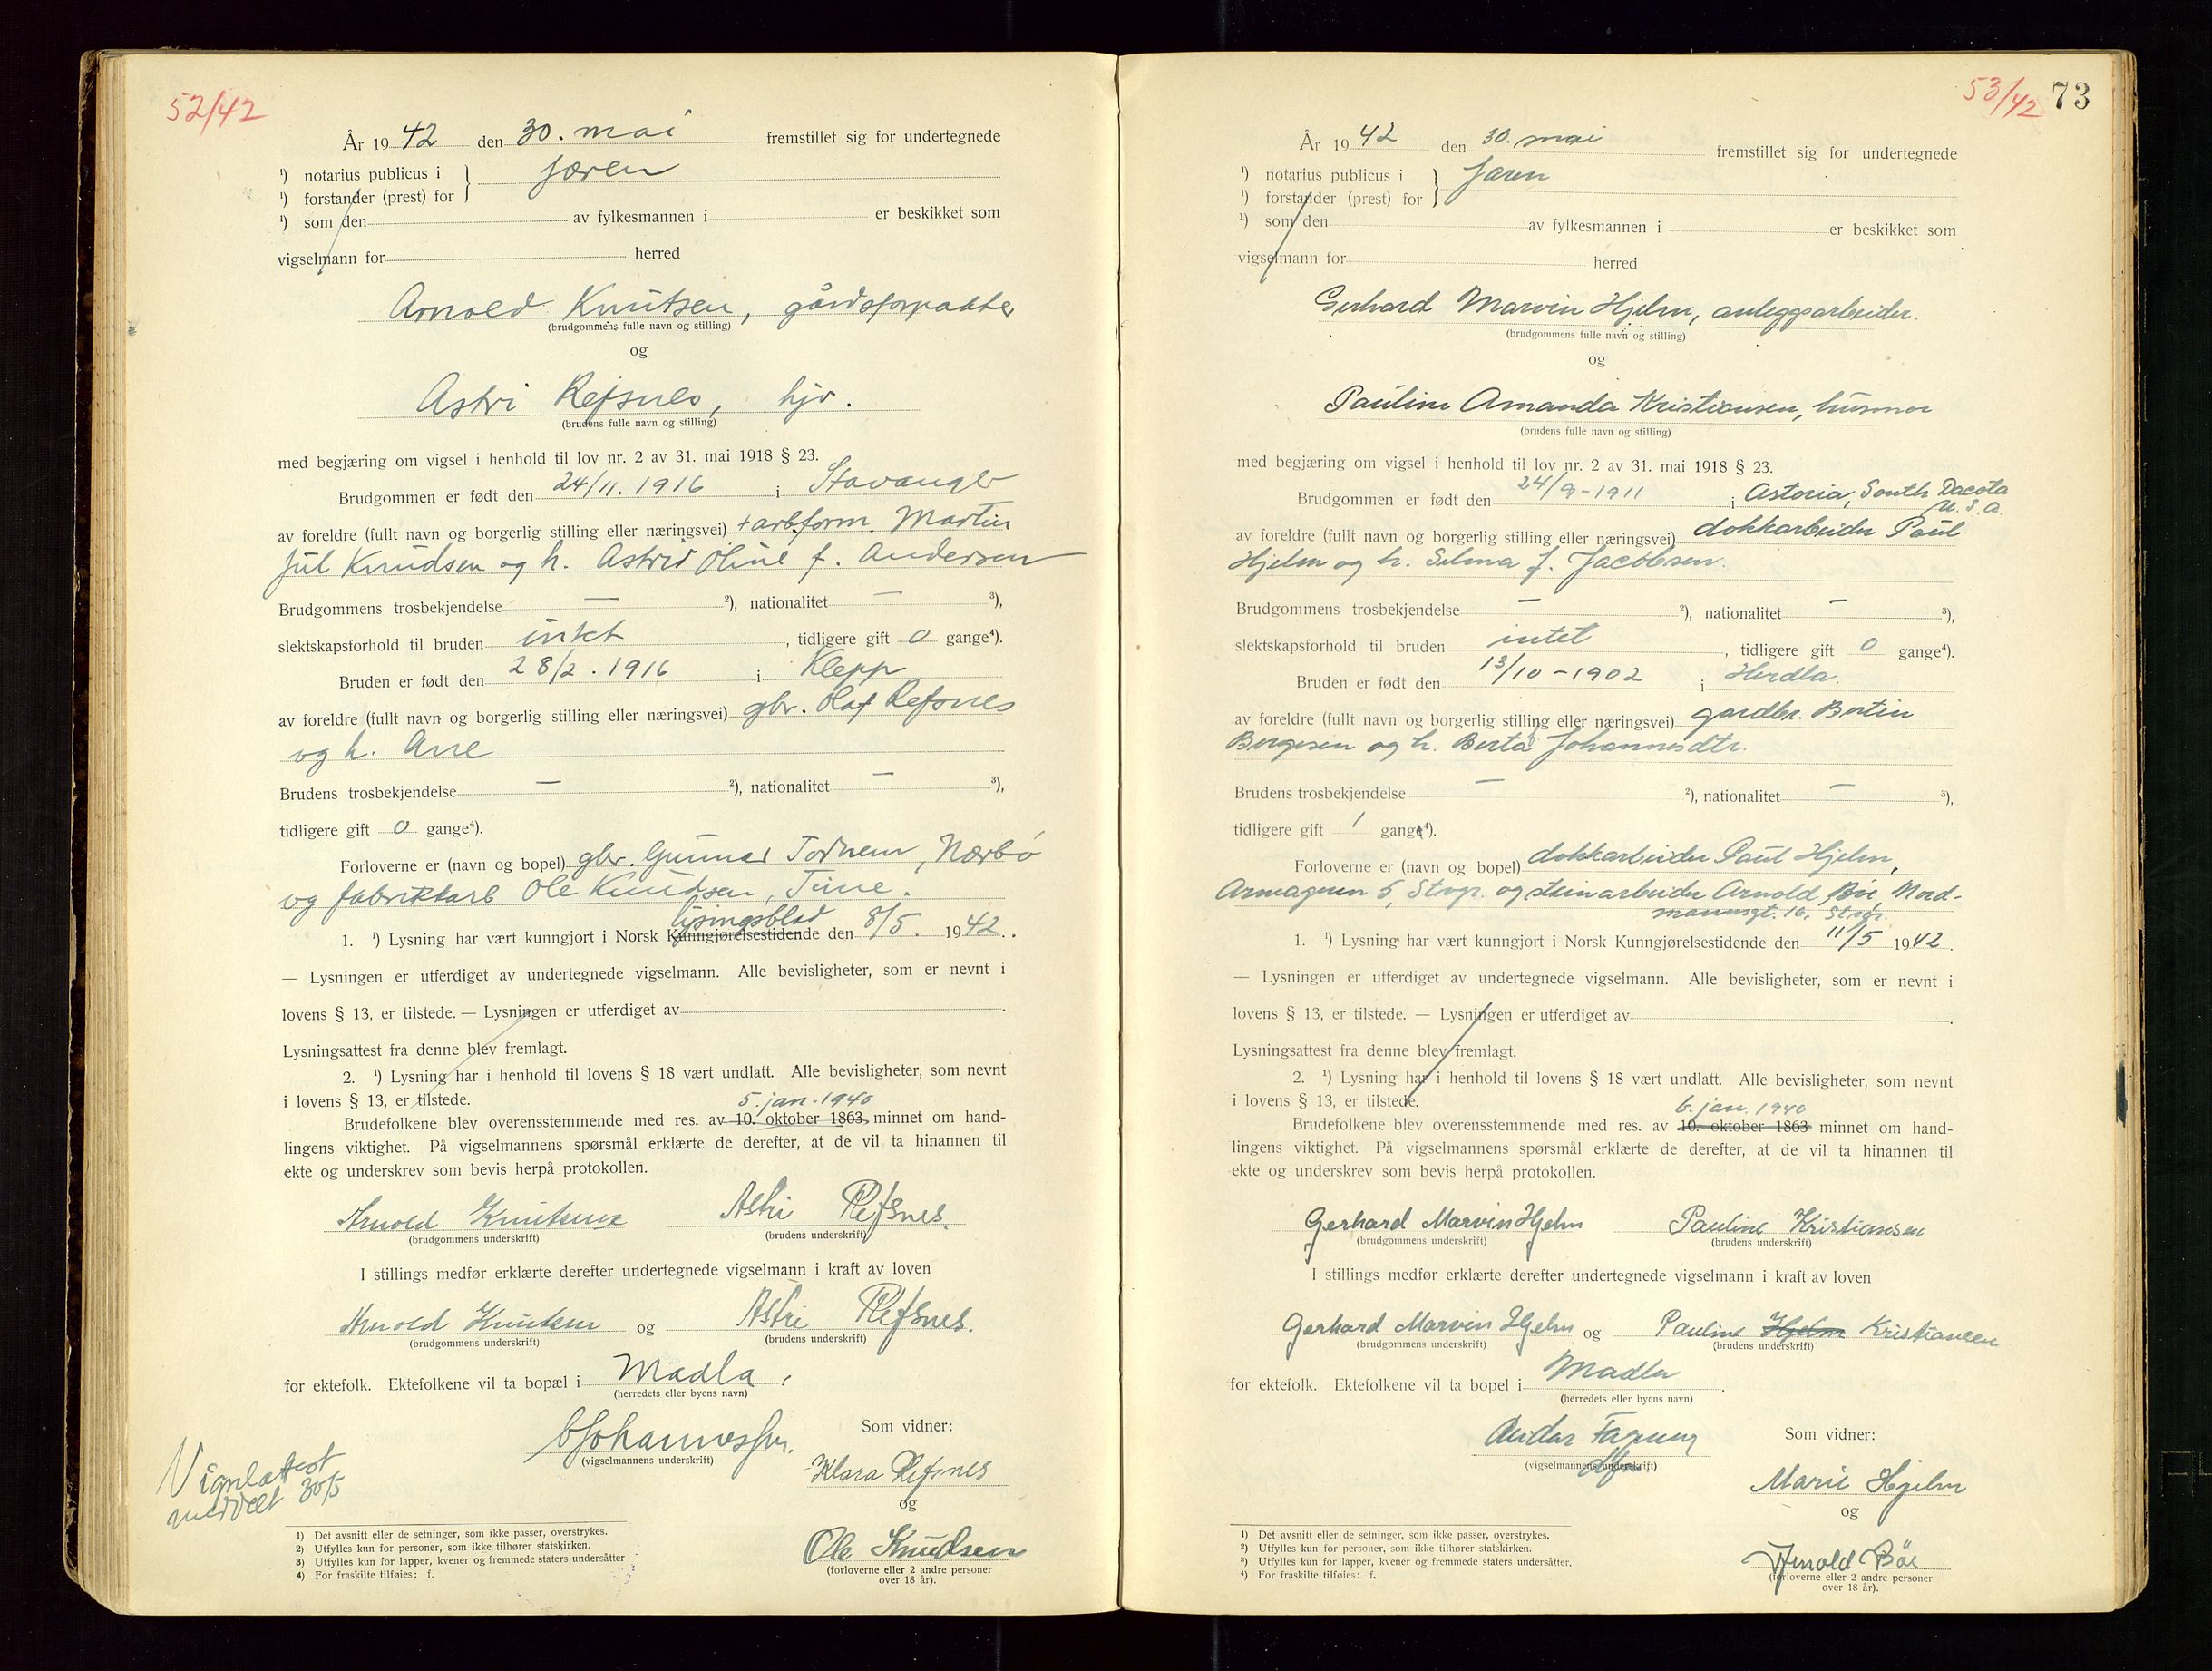 52/42
År 1942 den 30. mai fremstillet sig for undertegnede
¹) notarius publicus i } Jæren
¹) forstander (prest) for
¹) som den av fylkesmannen i er beskikket som
vigselmann for herred
Arnold Knutsen, gårdsforpakter
(brudgommens fulle navn og stilling)
og
Astri Refsnes, hjv.
(brudens fulle navn og stilling)
med begjæring om vigsel i henhold til lov nr. 2 av 31. mai 1918 § 23.
Brudgommen er født den 24/11. 1916 i Stavanger
av foreldre (fullt navn og borgerlig stilling eller næringsvei) + arbform. Martin
Jul Knudsen og h. Astrid Oline f. Andersen
Brudgommens trosbekjendelse — ²), nationalitet — ³),
slektskapsforhold til bruden intet, tidligere gift 0 gange⁴).
Bruden er født den 28/2. 1916 i Klepp
av foreldre (fullt navn og borgerlig stilling eller næringsvei) gbr. Olaf Refsnes
og h. Ane
Brudens trosbekjendelse — ²), nationalitet — ³),
tidligere gift 0 gange⁴).
Forloverne er (navn og bopel) gbr. Gunnar Tornem, Nærbø
og fabrikkarb Ole Knudsen, Time.
lysingsblad
1. ¹) Lysning har vært kunngjort i Norsk Kunngjørelsestidende den 8/5. 1942.
— Lysningen er utferdiget av undertegnede vigselmann. Alle bevisligheter, som er nevnt i
lovens § 13, er tilstede. — Lysningen er utferdiget av
Lysningsattest fra denne blev fremlagt.
2. ¹) Lysning har i henhold til lovens § 18 vært undlatt. Alle bevisligheter, som nevnt
i lovens § 13, er tilstede.
5. jan. 1940
Brudefolkene blev overensstemmende med res. av 10. oktober 1863 minnet om hand-
lingens viktighet. På vigselmannens spørsmål erklærte de derefter, at de vil ta hinannen til
ekte og underskrev som bevis herpå protokollen.
Arnold Knutsen Astri Refsnes.
(brudgommens underskrift) (brudens underskrift)
I stillings medfør erklærte derefter undertegnede vigselmann i kraft av loven
Arnold Knutsen og Astri Refsnes.
(brudgommens underskrift) (brudens underskrift)
for ektefolk. Ektefolkene vil ta bopæl i Madla.
(herredets eller byens navn)
Som vidner:
(vigselmannens underskrift)
Klara Refsnes
og
Ole Knudsen
(forloverne eller 2 andre personer
over 18 år).
Vigselattest
meddelt 30/5
¹) Det avsnitt eller de setninger, som ikke passer, overstrykes.
²) Utfylles kun for personer, som ikke tilhører statskirken.
³) Utfylles kun for lapper, kvener og fremmede staters undersåtter
⁴) For fraskilte tilføies: f.
53/42 73
År 1942 den 30. mai fremstillet sig for undertegnede
¹) notarius publicus i } Jæren
¹) forstander (prest) for
¹) som den av fylkesmannen i er beskikket som
vigselmann for herred
Gerhard Marvin Hjelm, anleggsarbeider.
(brudgommens fulle navn og stilling)
og
Pauline Amanda Kristiansen, husmor
(brudens fulle navn og stilling)
med begjæring om vigsel i henhold til lov nr. 2 av 31. mai 1918 § 23.
Brudgommen er født den 24/9-1911 i Astoria, South Dacota
U.S.A.
av foreldre (fullt navn og borgerlig stilling eller næringsvei) dokkarbeider Paul
Hjelm og h. Selma f. Jacobsen.
Brudgommens trosbekjendelse — ²), nationalitet — ³),
slektskapsforhold til bruden intet, tidligere gift 0 gange⁴).
Bruden er født den 13/10-1902 i Herdla.
av foreldre (fullt navn og borgerlig stilling eller næringsvei) gardbr. Bertin
Børgesen og h. Berta Johannesdtr.
Brudens trosbekjendelse — ²), nationalitet — ³),
tidligere gift 1 gange⁴).
Forloverne er (navn og bopel) dokkarbeider Paul Hjelm,
5, Stvgr. og steinarbeider Arnold Bøe, Nord-
mannsgt. 16, Stvgr.
1. ¹) Lysning har vært kunngjort i Norsk Kunngjørelsestidende den 11/5 1942.
— Lysningen er utferdiget av undertegnede vigselmann. Alle bevisligheter, som er nevnt i
lovens § 13, er tilstede. — Lysningen er utferdiget av
Lysningsattest fra denne blev fremlagt.
2. ¹) Lysning har i henhold til lovens § 18 vært undlatt. Alle bevisligheter, som nevnt
i lovens § 13, er tilstede.
6. jan. 1940
Brudefolkene blev overensstemmende med res. av 10. oktober 1863 minnet om hand-
lingens viktighet. På vigselmannens spørsmål erklærte de derefter, at de vil ta hinannen til
ekte og underskrev som bevis herpå protokollen.
Gerhard Marvin Hjelm Pauline Kristiansen
(brudgommens underskrift) (brudens underskrift)
I stillings medfør erklærte derefter undertegnede vigselmann i kraft av loven
Gerhard Marvin Hjelm og Pauline Hjelm Kristiansen
(brudgommens underskrift) (brudens underskrift)
for ektefolk. Ektefolkene vil ta bopel i Madla.
(herredets eller byens navn)
Som vidner:
(vigselmannens underskrift)
Marie Hjelm
og
Arnold Bøe
(forloverne eller 2 andre personer
over 18 år).
¹) Det avsnitt eller de setninger, som ikke passer, overstrykes.
²) Utfylles kun for personer, som ikke tilhører statskirken.
³) Utfylles kun for lapper, kvener og fremmede staters undersåtter.
⁴) For fraskilte tilføies: f.